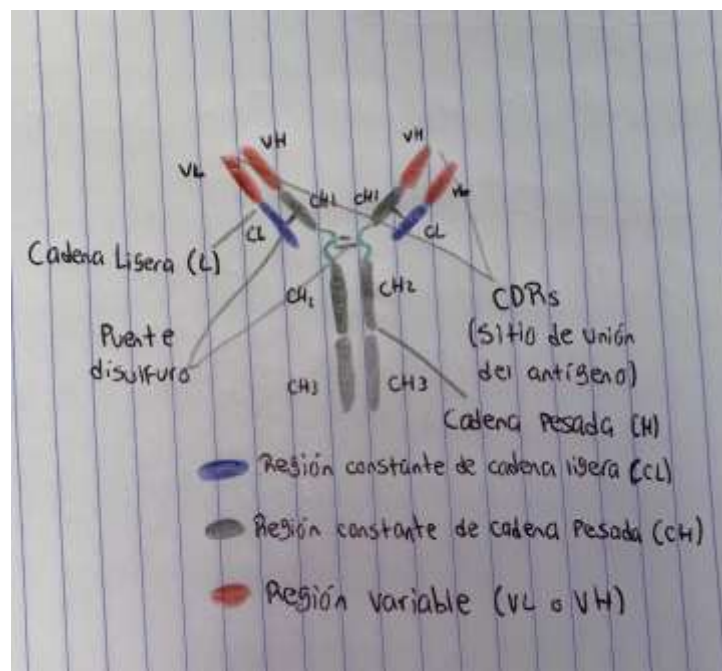 VL VH VH VL
CH1 CH1
CL CL
Cadena Ligera (L)
CH2 CH2
Puente
disulfuro
CDRs
(Sitio de unión
del antígeno)
CH3 CH3
Cadena Pesada (H)
Región constante de cadena ligera (CL)
Región constante de cadena Pesada (CH)
Región variable (VL o VH)